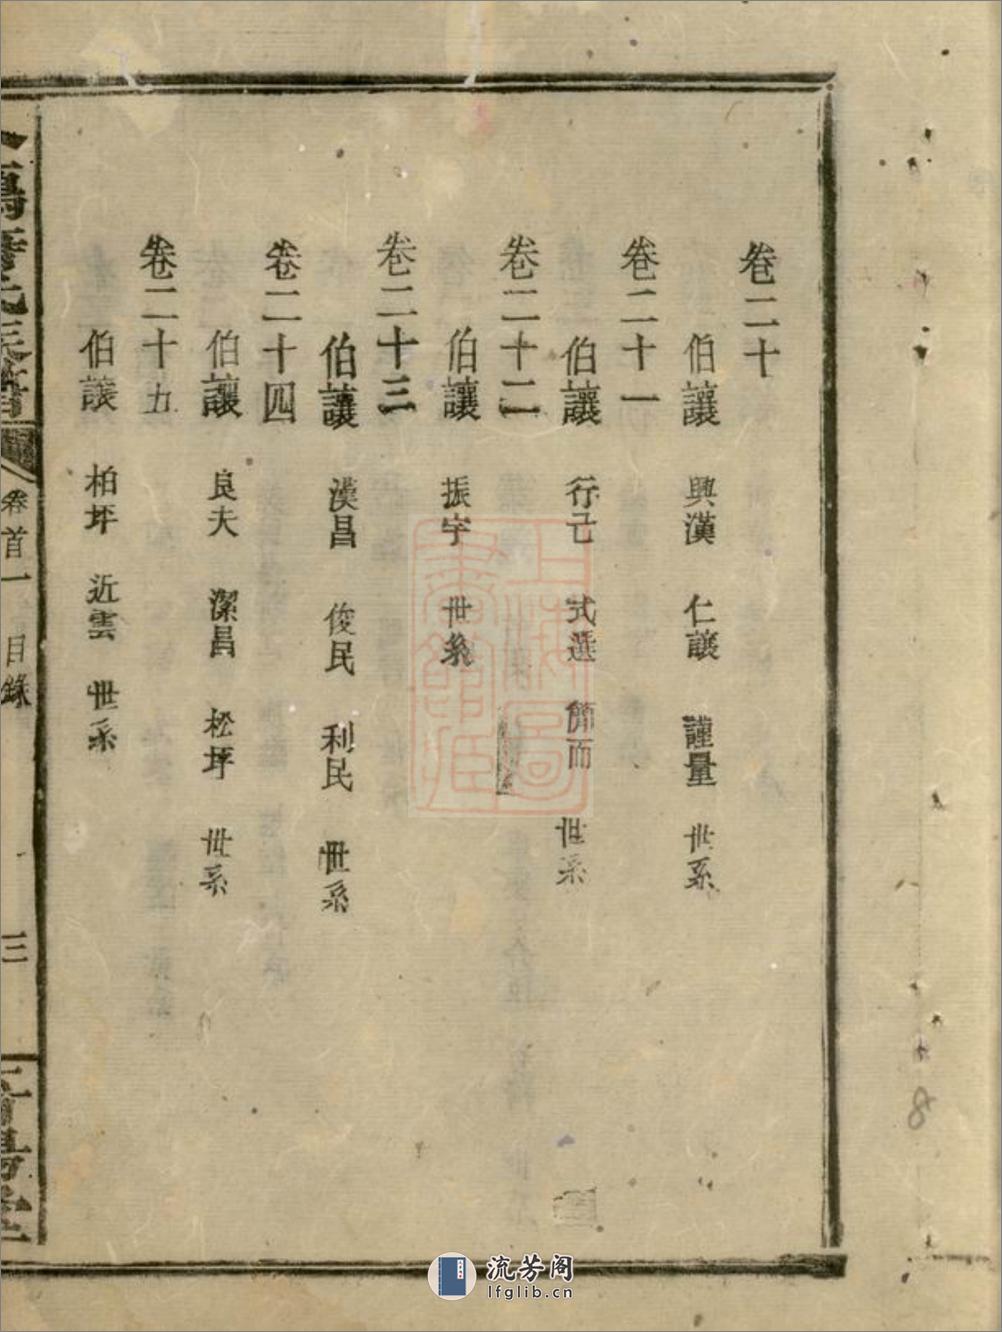 卷二十
伯讓 興漢 仁讓 謹量 世系
卷二十一
伯讓 行己 式選 節而 世系
卷二十二
伯讓 振宇 世系
卷二十三
伯讓 漢昌 俊民 利民 世系
卷二十四
伯讓 良夫 潔昌 松坪 世系
卷二十五
伯讓 柏坪 近雲 世系
卷首一 目錄 三
上海圖書館藏
8
流芳阁
lfglib.cn